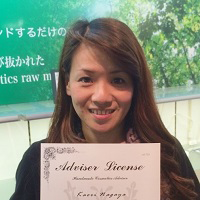 ンドするだけの
が抜かれた
tics raw m
Adviser License
Handmade Cosmetics Adviser
Kaori Nagaya